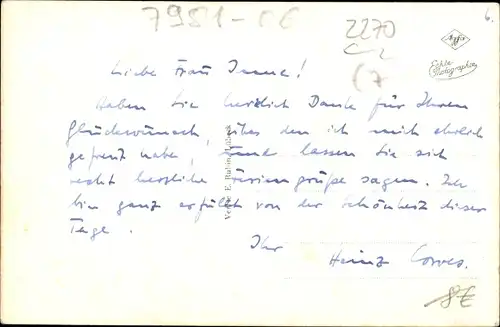 7981-CE
2270
6.
Agfa
Echte
Photographie
Liebe Frau Imme!
Haben Sie herzlich Dank für Ihren
Glückwunsch, über den ich mich ehrlich
gefreut habe, und lassen Sie sich
recht herzliche Feriengrüße sagen. Ich
bin ganz erfüllt von der Schönheit dieser
Tage.
Ihr Heinz
8€